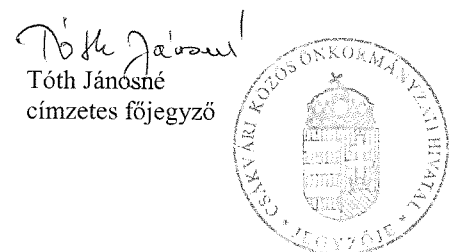 Tóth Jánosné
Tóth Jánosné
címzetes főjegyző
CSÁKVÁRI KÖZÖS ÖNKORMÁNYZATI HIVATAL
* JEGYZŐJE *